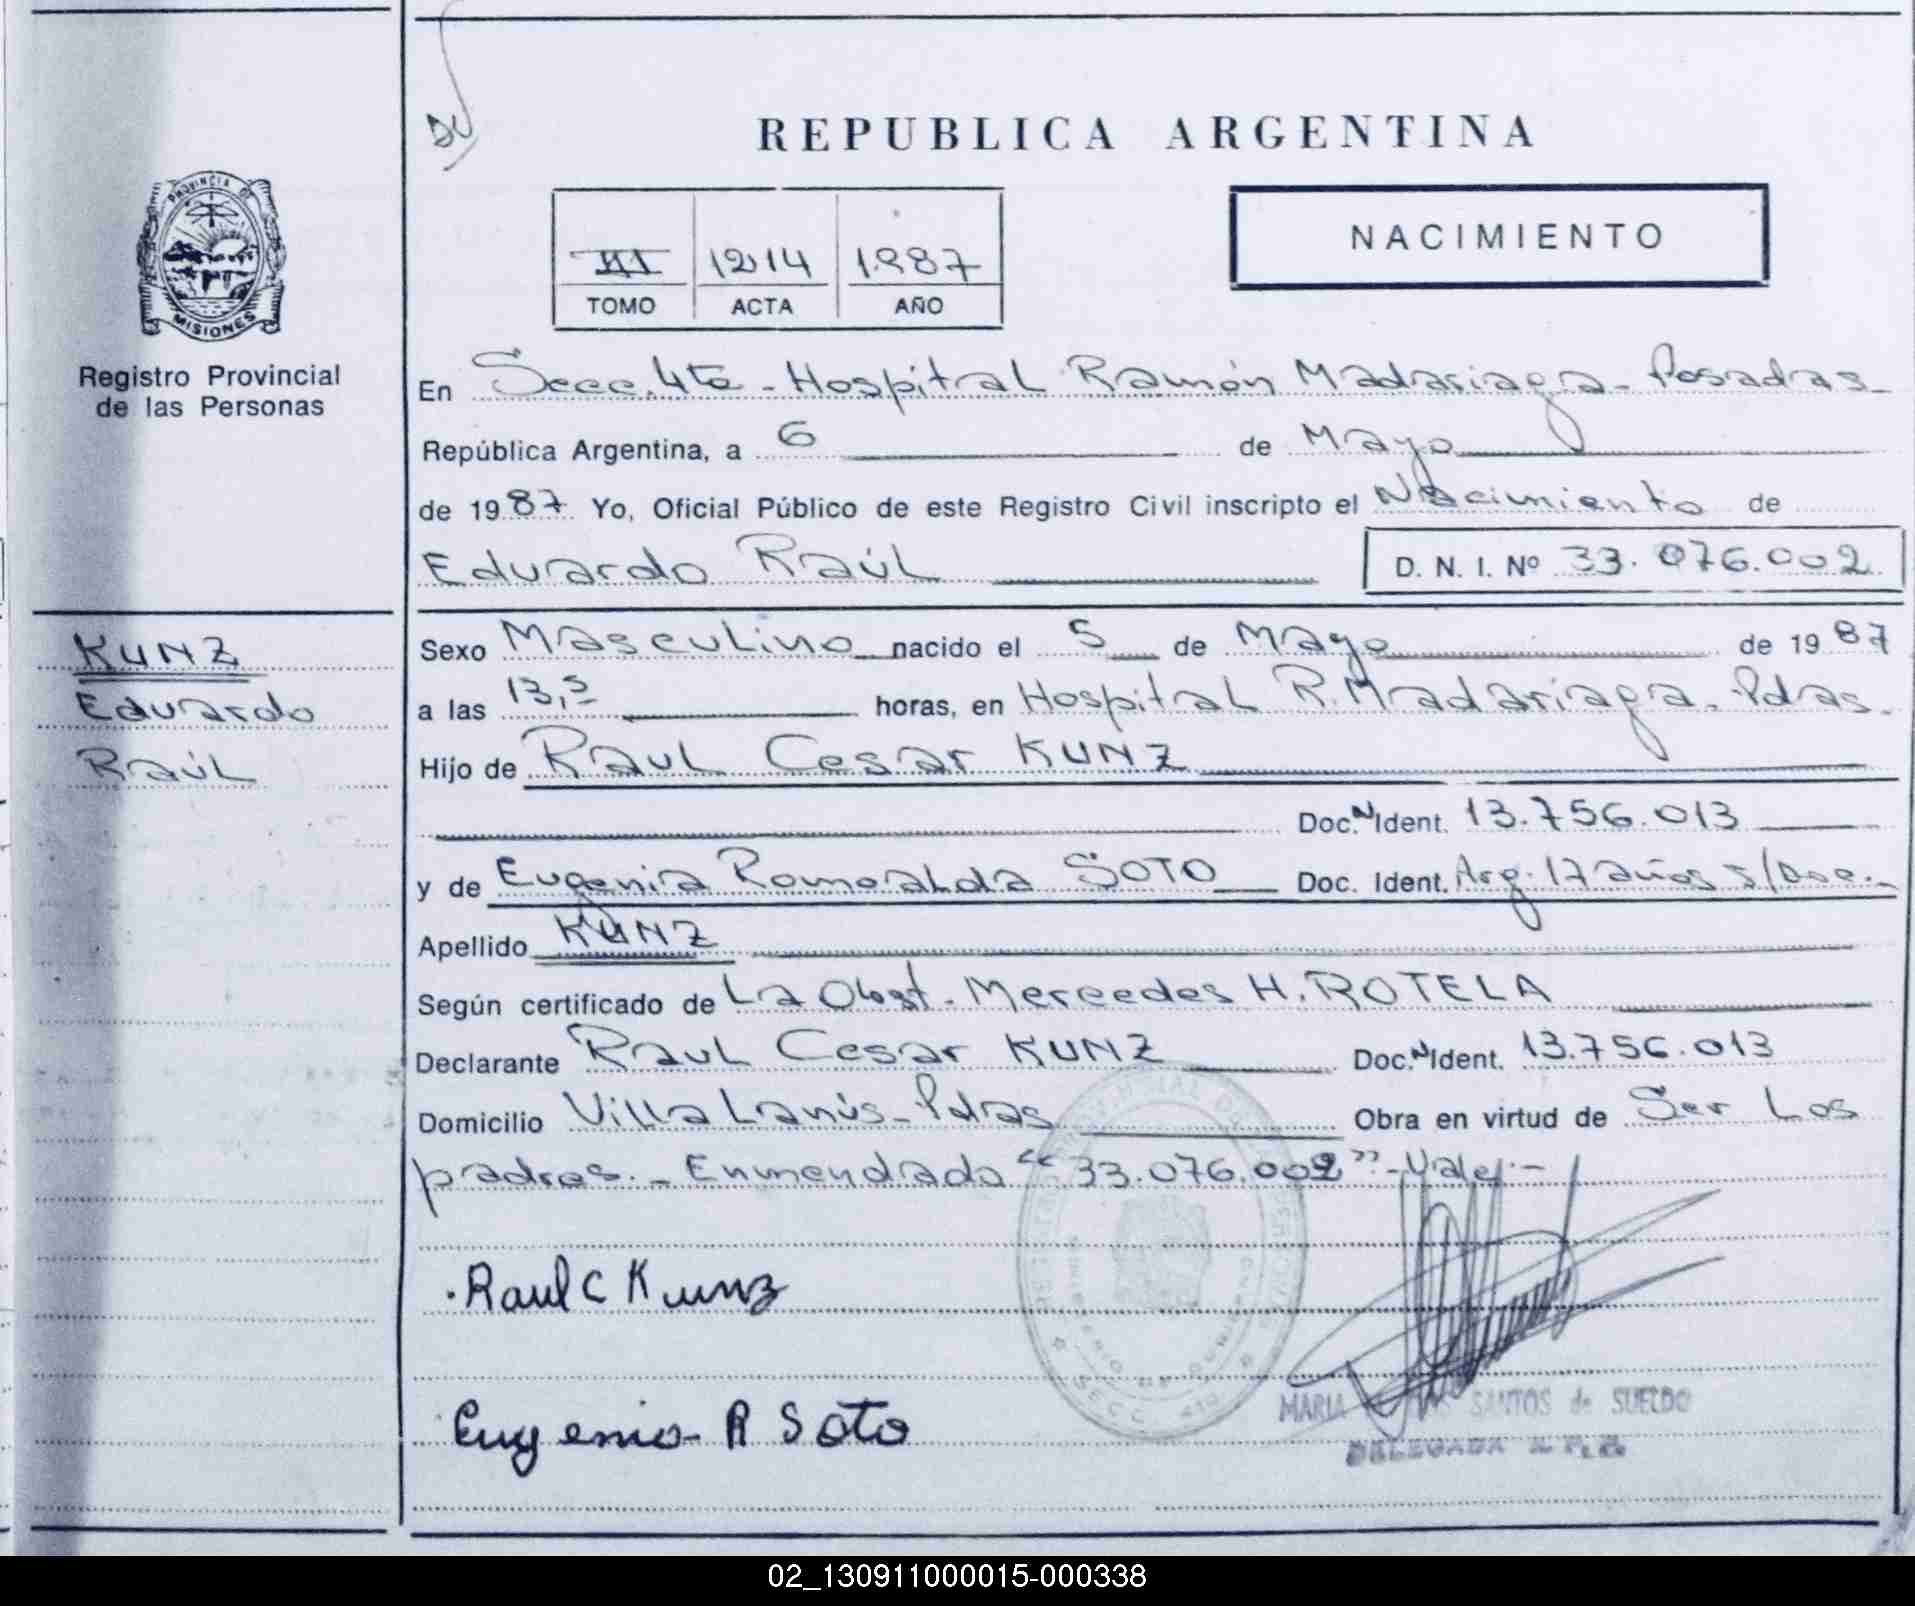 REPUBLICA ARGENTINA
NACIMIENTO
III 1214 1987
TOMO ACTA AÑO
PROVINCIA DE
MISIONES
Registro Provincial
de las Personas
En Secc. 4ta - Hospital Ramón Madariaga - Posadas -
República Argentina, a 6 de Mayo
de 1987 Yo, Oficial Público de este Registro Civil inscripto el Nacimiento de
Eduardo Raúl D. N. I. Nº 33.076.002
KUNZ
Eduardo
Raúl
Sexo Masculino nacido el 5 de Mayo de 1987
a las 13,5 horas, en Hospital R. Madariaga - Pdas.
Hijo de Raul Cesar KUNZ
Doc. N Ident. 13.756.013
y de Eugenia Romoalda SOTO Doc. Ident. Arg. 17 años s/Doc.-
Apellido KUNZ
Según certificado de La Obst. Mercedes H. ROTELA
Declarante Raul Cesar KUNZ Doc. N Ident. 13.756.013
Domicilio Villa Lanús - Pdas Obra en virtud de Ser Los
padres. - Enmendado "33.076.002" - Vale. -
Raul C Kunz
Eugenia R Soto
SECC
MARIA SANTOS de SUELDO
DELEGADA
02_130911000015-000338